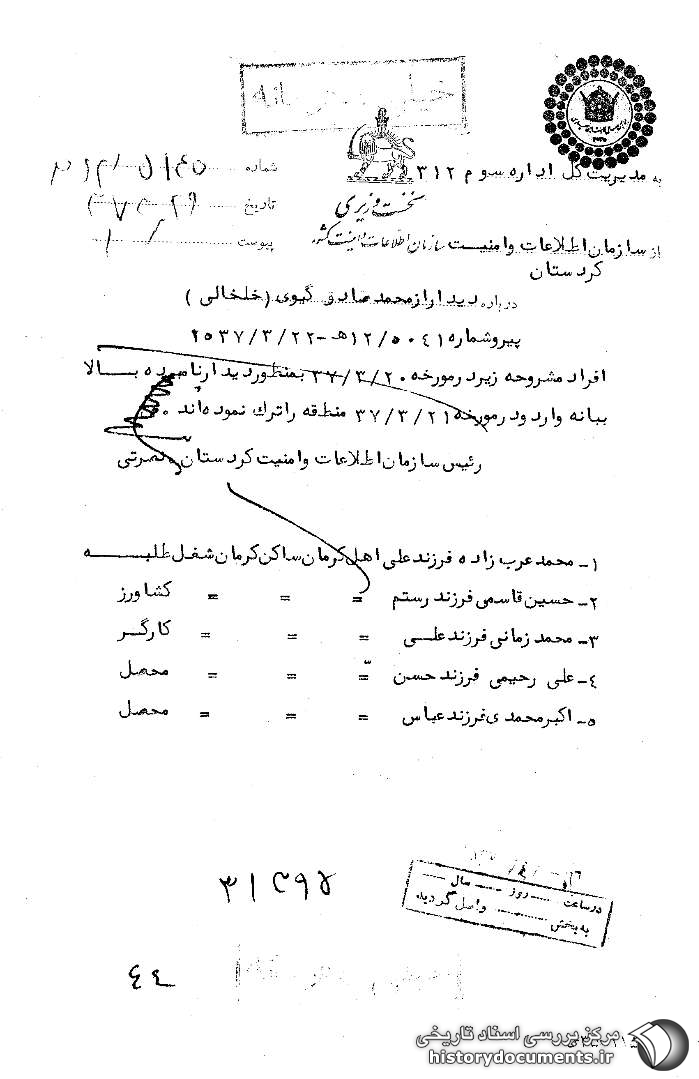 خیلی محرمانه
به مدیریت کل اداره سوم ۳۱۲
شماره
نخست وزیری
تاریخ
از سازمان اطلاعات و امنیت سازمان اطلاعات و امنیت کشور
پیوست
کردستان
درباره دیدار از محمد صادق گیوی (خلخالی)
پیرو شماره ۱۲/۵۰۴۱ه‍ -۲۵۳۷/۳/۲۲
افراد مشروحه زیر در مورخه ۳۷/۳/۲۰ بمنظور دیدار نامبرده بالا
ببانه وارد و در مورخه ۳۷/۳/۲۱ منطقه را ترك نموده‌اند.
رئیس سازمان اطلاعات و امنیت کردستان. نصرتی
۱- محمد عرب زاده فرزند علی اهل کرمان ساکن کرمان شغل طلبه
۲- حسین قاسمی فرزند رستم = = = کشاورز
۳- محمد زمانی فرزند علی = = = کارگر
۴- علی رحیمی فرزند حسن = = = محصل
۵- اکبر محمدی فرزند عباس = = = محصل
در ساعت روز سال
به بخش واصل گردید
۴۴
مرکز بررسی اسناد تاریخی
historydocuments.ir